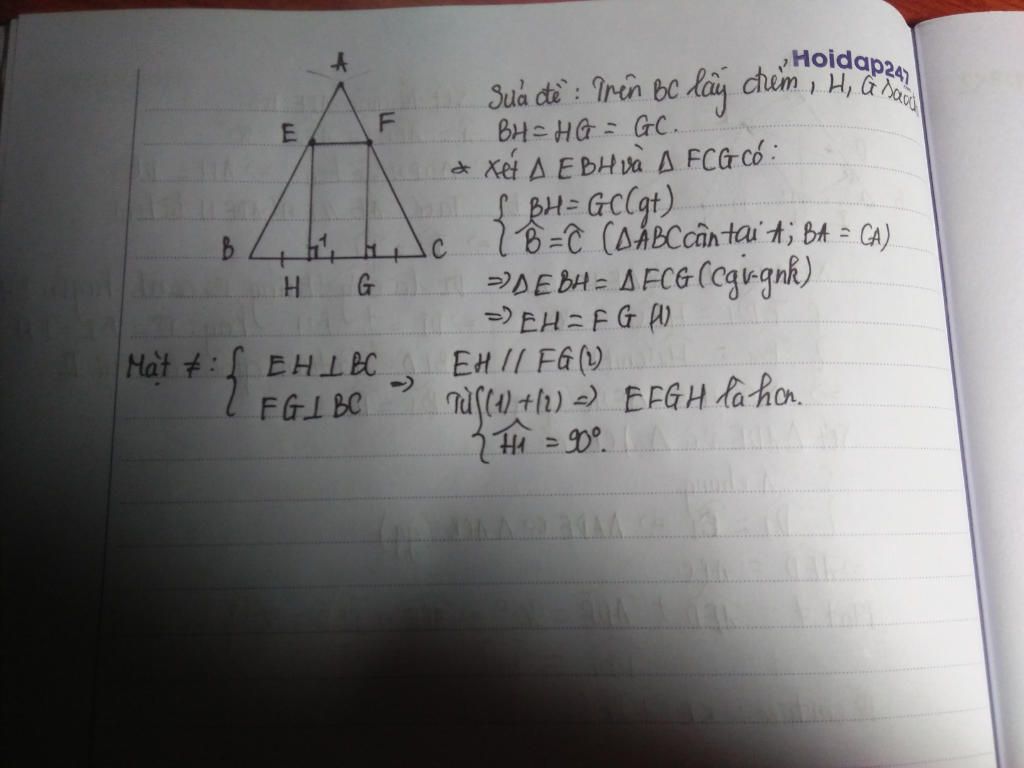 Hoidap247
A
E
F
B
H
1
G
C
Sửa đề: Trên BC lấy điểm, H, G sao ch
BH = HG = GC.
* Xét Δ EBH và Δ FCG có:
{ BH = GC (gt)
B̂ = Ĉ (ΔABC cân tại A; BA = CA)
=> Δ EBH = Δ FCG (cgv-gnk)
=> EH = FG (1)
Mặt ≠: { EH ⊥ BC => EH // FG (2)
FG ⊥ BC Từ { (1) + (2) => EFGH là hcn.
Ĥ1 = 90°.